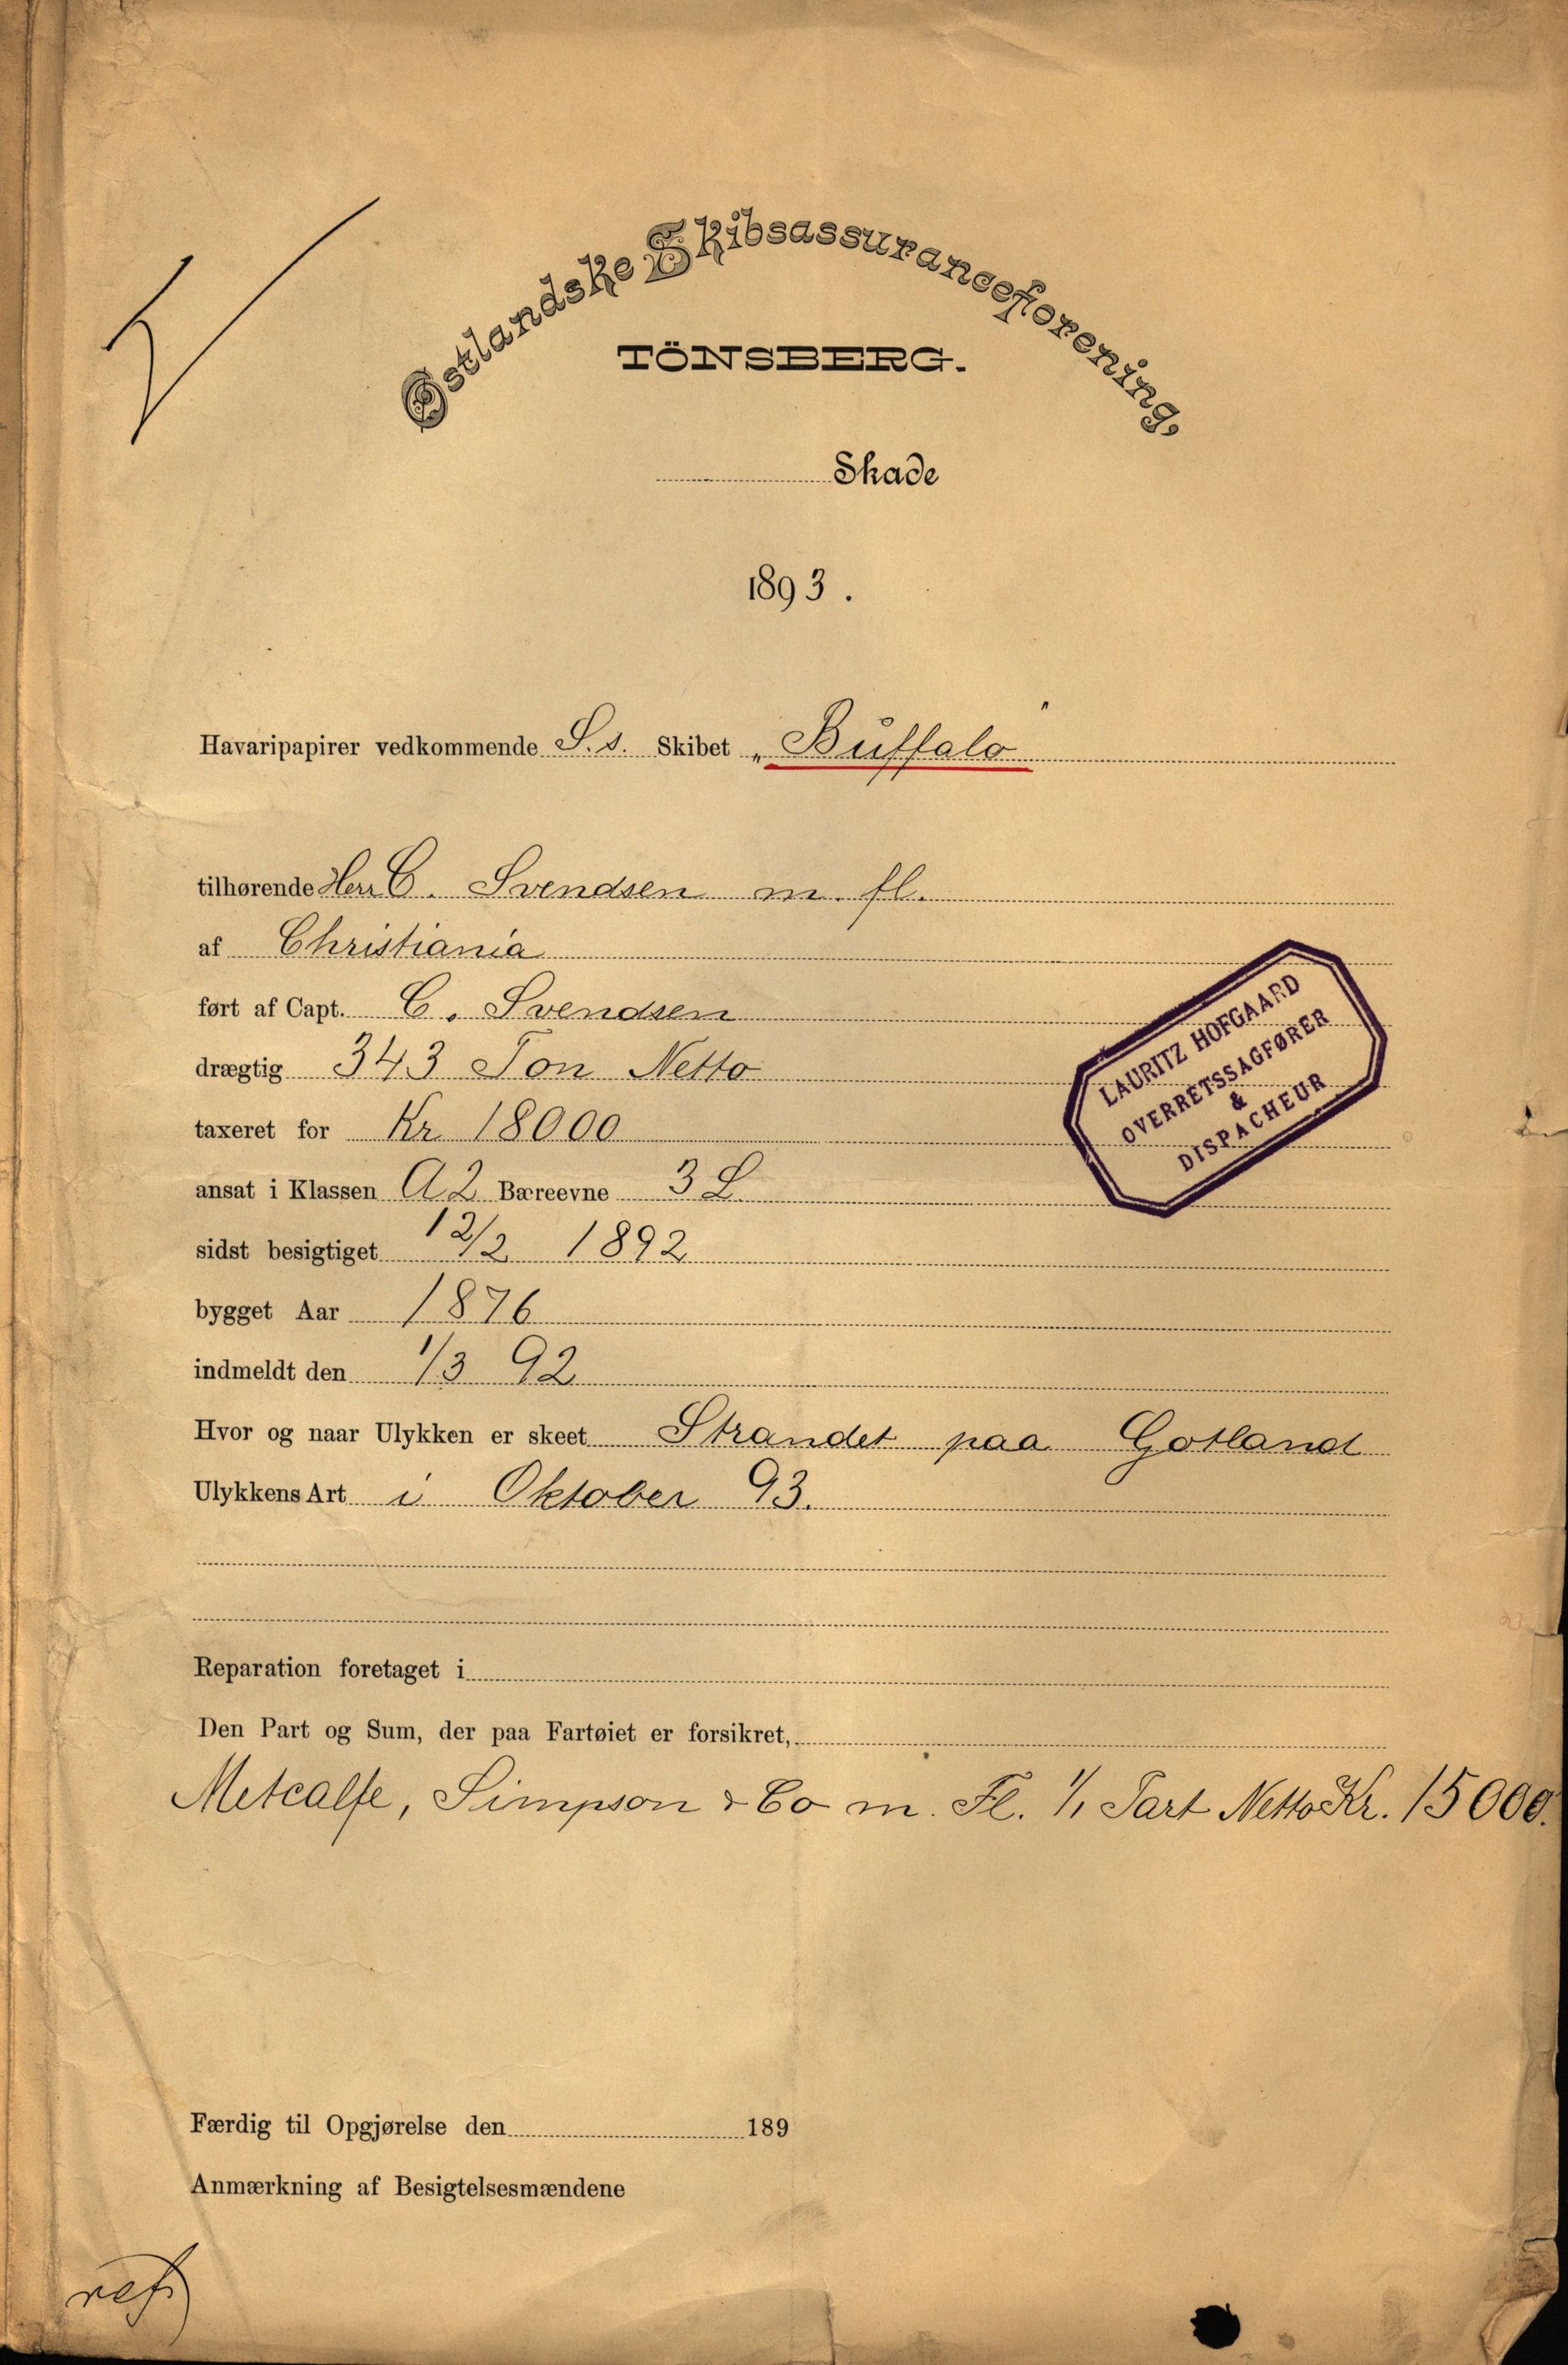 Østlandske Skibsassuranceforening,
TÖNSBERG.
Skade
1893.
Havaripapirer vedkommende S.s. Skibet „Buffalo"
tilhørende Herr C. Svendsen m. fl.
af Christiania
ført af Capt. C. Svendsen
drægtig 343 Ton Netto
taxeret for Kr 18000
ansat i Klassen A 2 Bæreevne 3 L.
sidst besigtiget 12/2 1892
bygget Aar 1876
indmeldt den 1/3 92
Hvor og naar Ulykken er skeet Strandet paa Gotland
Ulykkens Art i Oktober 93.
LAURITZ HOFGAARD
OVERRETSSAGFØRER
&
DISPACHEUR
Reparation foretaget i
Den Part og Sum, der paa Fartøiet er forsikret,
Metcalfe, Simpson & Co m. Fl. 1/1 Part Netto Kr. 15000.
Færdig til Opgjørelse den 189
Anmærkning af Besigtelsesmændene